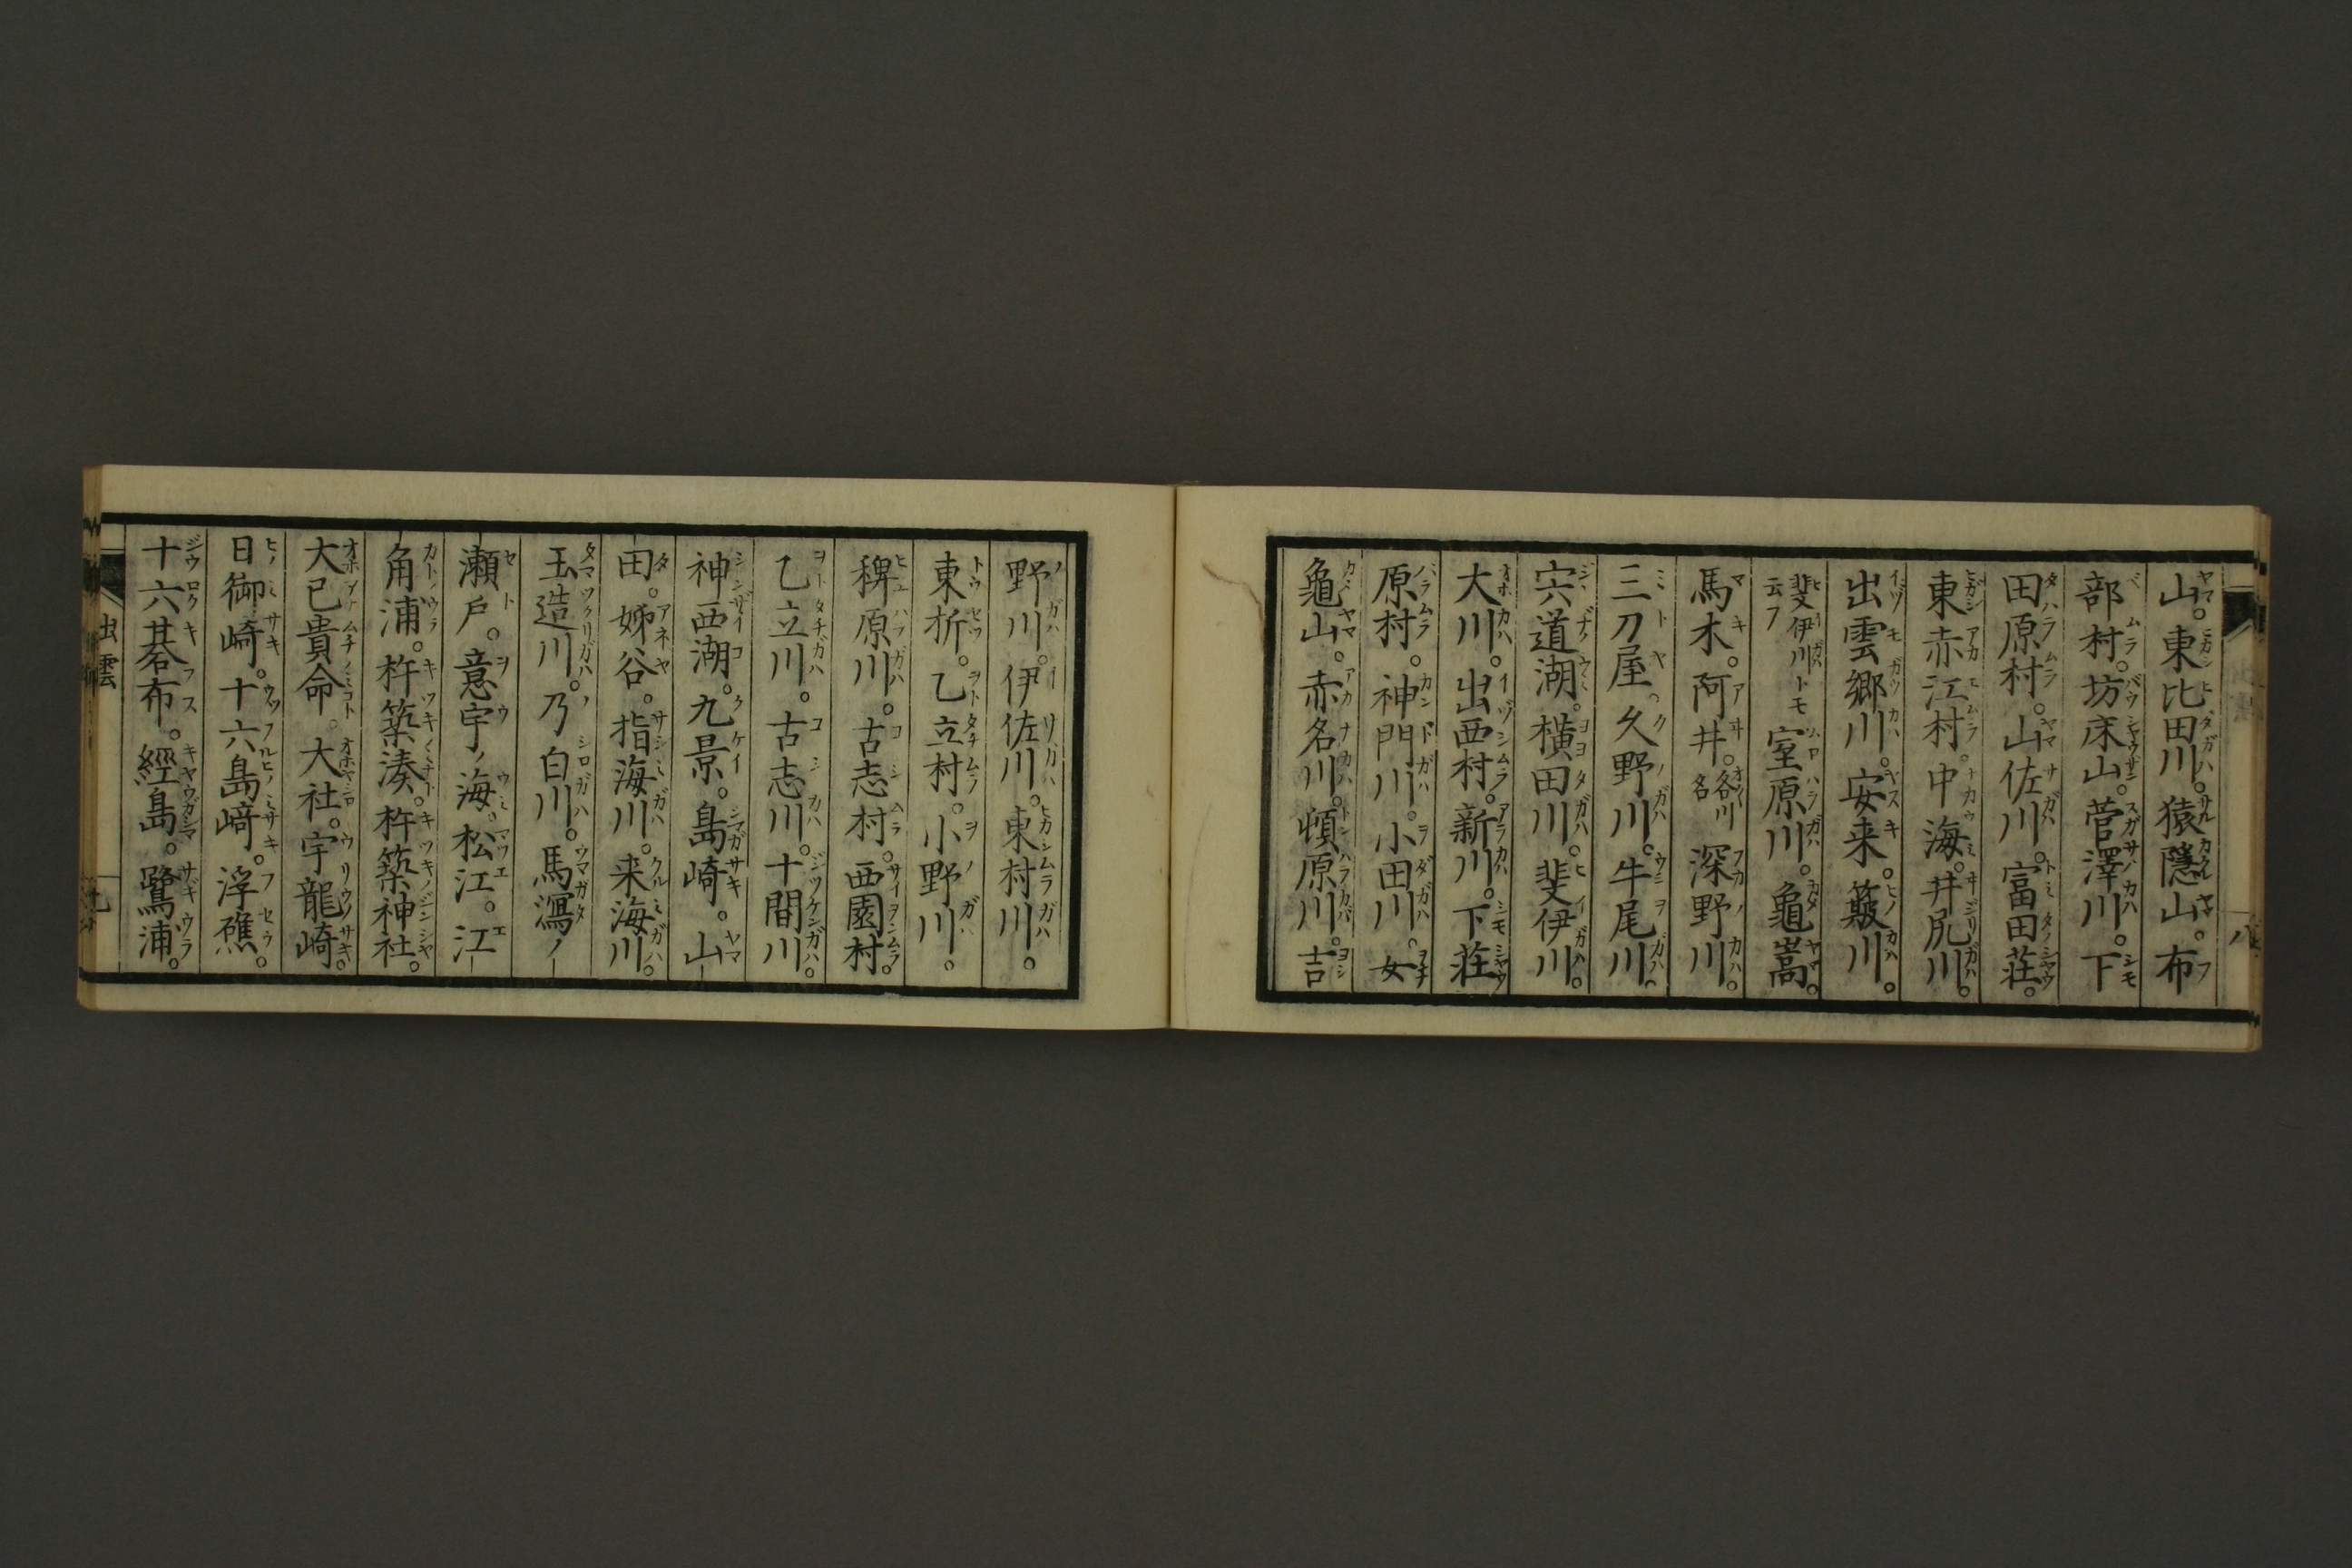 山。東比田川。猿隱山。布
部村。坊床山。菅澤川。下
田原村。山佐川。富田莊。
東赤江村。中海。井尻川。
出雲郷川。安来。簸川。
斐伊川トモ云フ 室原川。龜嵩。
馬木。阿井。谷川名 深野川。
三刀屋。久野川。牛尾川。
宍道湖。横田川。斐伊川。
大川。出西村。新川。下莊
原村。神門川。小田川。女
龜山。赤名川。頓原川。吉
野川。伊佐川。東村川。
東折。乙立村。小野川。
稗原川。古志村。西園村。
乙立川。古志川。十間川。
神西湖。九景。島崎。山
田。姊谷。指海川。来海川。
玉造川。乃白川。馬瀉ノ
瀬戸。意宇ノ海。松江。江
角浦。杵築湊。杵築神社。
大己貴命。大社。宇龍崎。
日御崎。十六島﨑。浮礁。
十六碁布。經島。鷺浦。
出雲
八
九